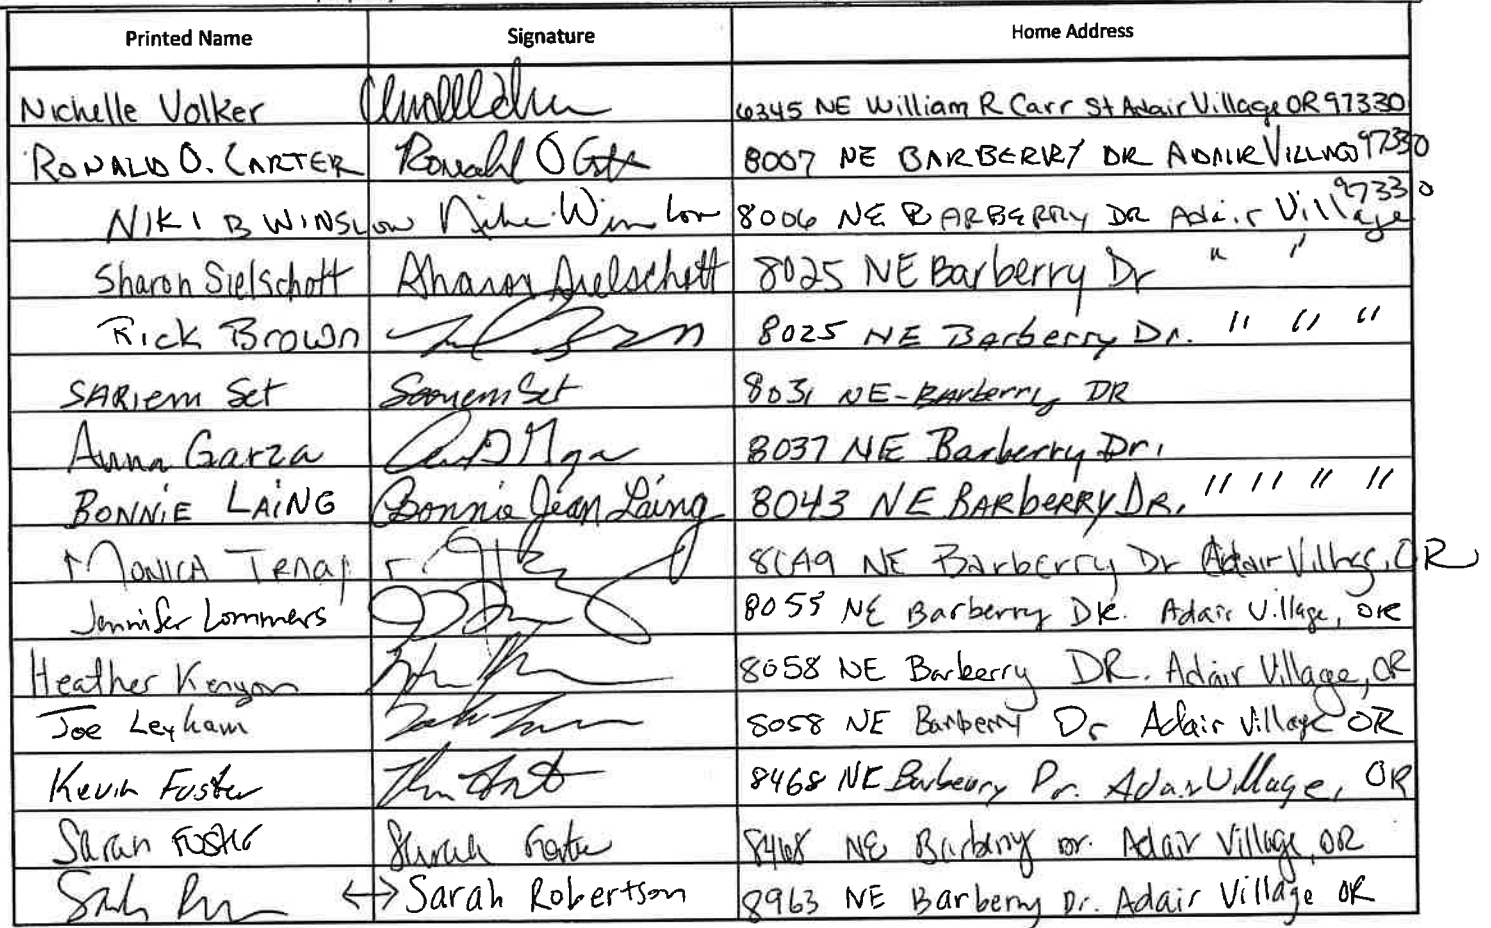 Printed Name Signature Home Address
Nichelle Volker 6345 NE William R Carr St Adair Village OR 97330
RONALD O. CARTER Ronald O 8007 NE BARBERRY DR ADAIR VILLAGE 97330
NIKI B WINSLOW Niki Winslow 8006 NE BARBERRY DR Adair Village 97330
Sharon Sielschott Sharon Sielschott 8025 NE Barberry Dr " "
Rick Brown 8025 NE Barberry Dr. " " "
SARIEM Set Set 8031 NE-Barberry DR
Anna Garza 8037 NE Barberry Dr.
BONNIE LAING Bonnie Jean Laing 8043 NE BARBERRY DR. " " " "
MONICA 8049 NE Barberry Dr Adair Village, OR
Jennifer Lommers 8055 NE Barberry DR. Adair Village, ORE
Heather Kenyon 8058 NE Barberry DR. Adair Village, OR
Joe Leyham 8058 NE Barberry Dr Adair Village OR
Kevin Foster 8468 NE Barberry Dr. Adair Village, OR
Sarah FOSTER Sarah Foster 8468 NE Barberry Dr. Adair Village, OR
↔ Sarah Robertson 8963 NE Barberry Dr. Adair Village OR